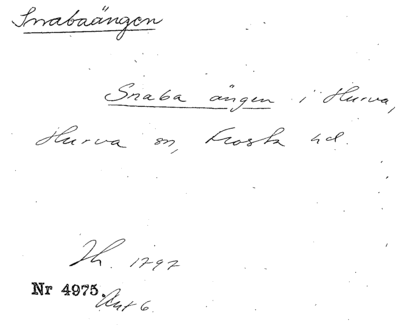 Snabaängen
Snaba ängen i Hurva,
Hurva sn, Frosta hd.
Jh. 1797
Nr 4975. Akt 6